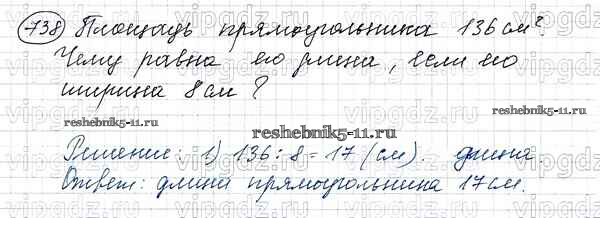 738 Площадь прямоугольника 136 см².
Чему равна его длина, если его
ширина 8 см?
reshebnik5-11.ru
reshebnik5-11.ru
Решение: 1) 136:8=17 (см). длина.
Ответ: длина прямоугольника 17 см.